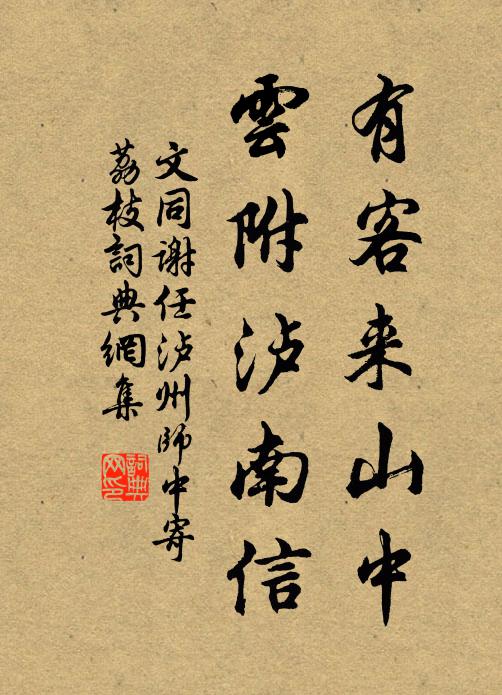 有客来山中
雲附泸南信
文同謝任泸州师中寄
荔枝詞典網集
詞典
网印